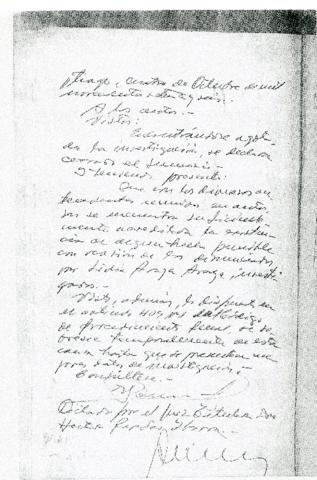 Stgo, cuatro de Octubre de mil
novecientos setenta y seis.-
A los autos.-
Vistos:
Encontrándose agota-
da la investigación, se declara
cerrado el sumario.-
I teniendo presente:
Que con los diversos an-
tecedentes reunidos en autos,
no se encuentra suficiente-
mente acreditada la existen-
cia de algún hecho punible
con ocasión de los denunciados
por Lidia Araya Araya, investi-
gados.-
Visto, además, lo dispuesto en
el artículo 409, Nº 1 del Código
de Procedimiento Penal, se so-
bresee temporalmente en esta
causa hasta que se presenten me-
jores datos de investigación.-
Consúltese.-
Dictado por el Juez Titular Don
Hector